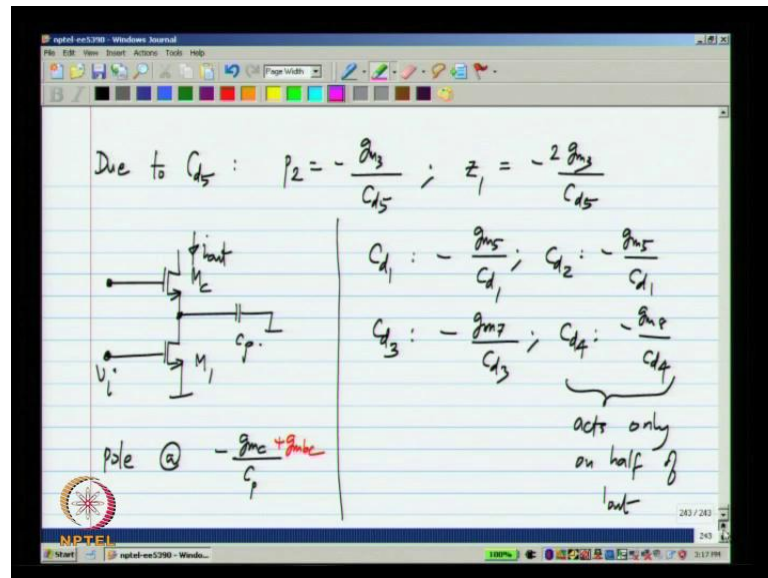 nptel-ee5390 - Windows Journal
File Edit View Insert Actions Tools Help
Page Width
Due to Cd5 : p2 = - gm3 / Cd5 ; z1 = - 2 gm3 / Cd5
iout
Mc
Cp
Vi
M1
pole @ - gmc + gmbc / Cp
Cd1 : - gm5 / Cd1 ; Cd2 : - gm5 / Cd1
Cd3 : - gm7 / Cd3 ; Cd4 : - gm8 / Cd4
acts only
on half of
iout
243 / 243
243
NPTEL
Start nptel-ee5390 - Windo... 100% 3:17 PM